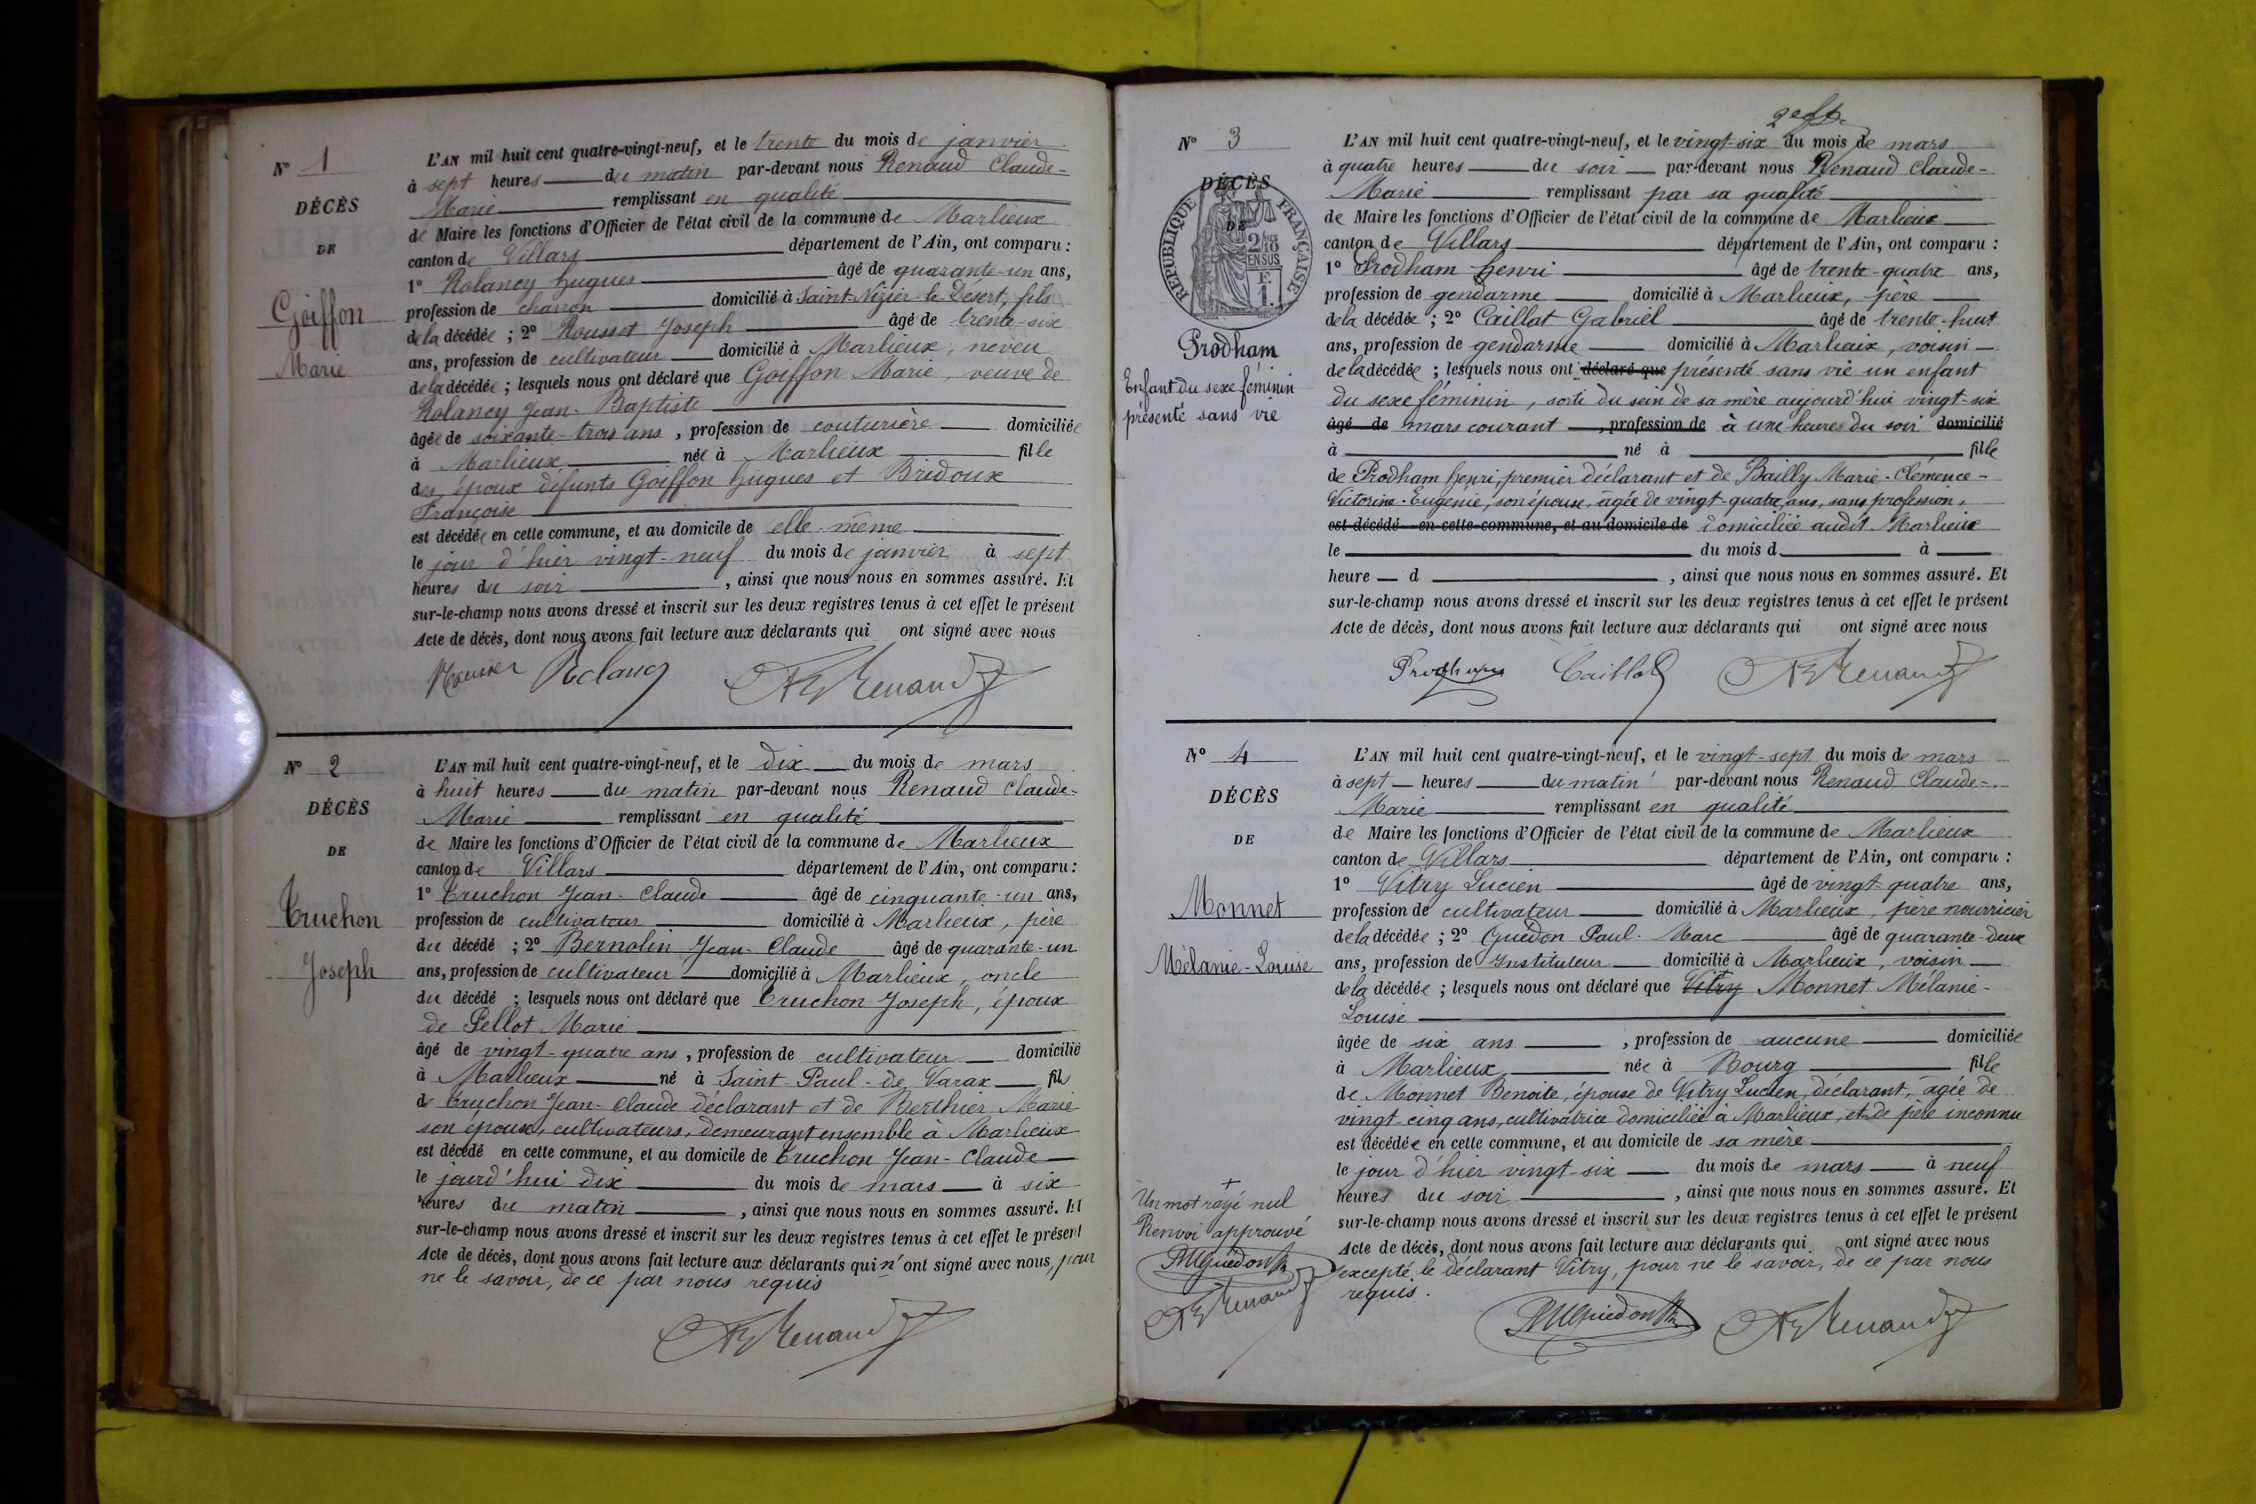 N° 1
DÉCÈS
DE
Goiffon
Marie
L'AN mil huit cent quatre-vingt-neuf, et le trente du mois de janvier
à sept heures du matin par-devant nous Renaud Claude-
Marie remplissant en qualité
de Maire les fonctions d'Officier de l'état civil de la commune de Marlieux
canton de Villars département de l'Ain, ont comparu :
1° Rolancy Hugues âgé de quarante-un ans,
profession de charron domicilié à Saint-Nizier-le-Désert, fils
de la décédée ; 2° Rousset Joseph âgé de trente-six
ans, profession de cultivateur domicilié à Marlieux, neveu
de la décédée ; lesquels nous ont déclaré que Goiffon Marie, veuve de
Rolancy Jean-Baptiste
âgée de soixante-trois ans, profession de couturière domiciliée
à Marlieux née à Marlieux fille
des époux défunts Goiffon Hugues et Bridoux
Françoise
est décédée en cette commune, et au domicile de elle-même
le jour d'hier vingt-neuf du mois de janvier à sept
heures du soir, ainsi que nous nous en sommes assuré. Et
sur-le-champ nous avons dressé et inscrit sur les deux registres tenus à cet effet le présent
Acte de décès, dont nous avons fait lecture aux déclarants qui ont signé avec nous
Rolancy Renaud
N° 2
DÉCÈS
DE
Truchon
Joseph
L'AN mil huit cent quatre-vingt-neuf, et le dix du mois de mars
à huit heures du matin par-devant nous Renaud Claude-
Marie remplissant en qualité
de Maire les fonctions d'Officier de l'état civil de la commune de Marlieux
canton de Villars département de l'Ain, ont comparu :
1° Truchon Jean-Claude âgé de cinquante-un ans,
profession de cultivateur domicilié à Marlieux, père
du décédé ; 2° Bernolin Jean-Claude âgé de quarante-un
ans, profession de cultivateur domicilié à Marlieux, oncle
du décédé ; lesquels nous ont déclaré que Truchon Joseph, époux
de Pellot Marie
âgé de vingt-quatre ans, profession de cultivateur domicilié
à Marlieux né à Saint-Paul-de-Varax fils
de Truchon Jean-Claude déclarant et de Berthier Marie
son épouse, cultivateurs, demeurant ensemble à Marlieux
est décédé en cette commune, et au domicile de Truchon Jean-Claude
le jourd'hui dix du mois de mars à six
heures du matin, ainsi que nous nous en sommes assuré. Et
sur-le-champ nous avons dressé et inscrit sur les deux registres tenus à cet effet le présent
Acte de décès, dont nous avons fait lecture aux déclarants qui n'ont signé avec nous, pour
ne le savoir, de ce par nous requis
Renaud
N° 3
DÉCÈS
DE
RÉPUBLIQUE FRANÇAISE
Prodham
Enfant du sexe féminin
présenté sans vie
L'AN mil huit cent quatre-vingt-neuf, et le vingt-six du mois de mars
à quatre heures du soir par-devant nous Renaud Claude-
Marie remplissant par sa qualité
de Maire les fonctions d'Officier de l'état civil de la commune de Marlieux
canton de Villars département de l'Ain, ont comparu :
1° Prodham Henri âgé de trente-quatre ans,
profession de gendarme domicilié à Marlieux, père
de la décédée ; 2° Caillat Gabriel âgé de trente-huit
ans, profession de gendarme domicilié à Marlieux, voisin
de la décédée ; lesquels nous ont déclaré que présenté sans vie un enfant
du sexe féminin, sorti du sein de sa mère aujourd'hui vingt-six
âgé de mars courant, profession de à une heures du soir domicilié
à né à fille
de Prodham Henri, premier déclarant et de Bailly Marie-Clémence-
Victorine-Eugénie, son épouse, âgée de vingt-quatre ans, sans profession,
est décédé en cette commune, et au domicile de domiciliée audit Marlieux
le du mois d à
heure d, ainsi que nous nous en sommes assuré. Et
sur-le-champ nous avons dressé et inscrit sur les deux registres tenus à cet effet le présent
Acte de décès, dont nous avons fait lecture aux déclarants qui ont signé avec nous
Prodham Caillat Renaud
N° 4
DÉCÈS
DE
Monnet
Mélanie-Louise
L'AN mil huit cent quatre-vingt-neuf, et le vingt-sept du mois de mars
à sept heures du matin par-devant nous Renaud Claude-
Marie remplissant en qualité
de Maire les fonctions d'Officier de l'état civil de la commune de Marlieux
canton de Villars département de l'Ain, ont comparu :
1° Vitry Lucien âgé de vingt-quatre ans,
profession de cultivateur domicilié à Marlieux, père nourricier
de la décédée ; 2° Guédon Paul-Marc âgé de quarante-deux
ans, profession de Instituteur domicilié à Marlieux, voisin
de la décédée ; lesquels nous ont déclaré que Vitry Monnet Mélanie-
Louise
âgée de six ans, profession de aucune domiciliée
à Marlieux née à Bourg fille
de Monnet Benoite, épouse de Vitry Lucien, déclarant, âgée de
vingt-cinq ans, cultivatrice domiciliée à Marlieux, et de père inconnu
est décédée en cette commune, et au domicile de sa mère
le jour d'hier vingt-six du mois de mars à neuf
heures du soir, ainsi que nous nous en sommes assuré. Et
sur-le-champ nous avons dressé et inscrit sur les deux registres tenus à cet effet le présent
Acte de décès, dont nous avons fait lecture aux déclarants qui ont signé avec nous
excepté le déclarant Vitry, pour ne le savoir, de ce par nous
requis.
+
Un mot rayé nul
Renvoi approuvé
PMGuédon
Renaud
PMGuédon Renaud